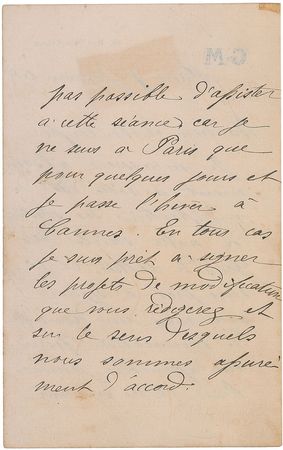 pas possible d'assister
à cette séance car je
ne suis à Paris que
pour quelques jours et
je passe l'hiver à
Cannes. En tous cas
je suis prêt à signer
les projets de modification
que vous rédigerez et
sur le sens desquels
nous sommes assuré
ment d'accord.